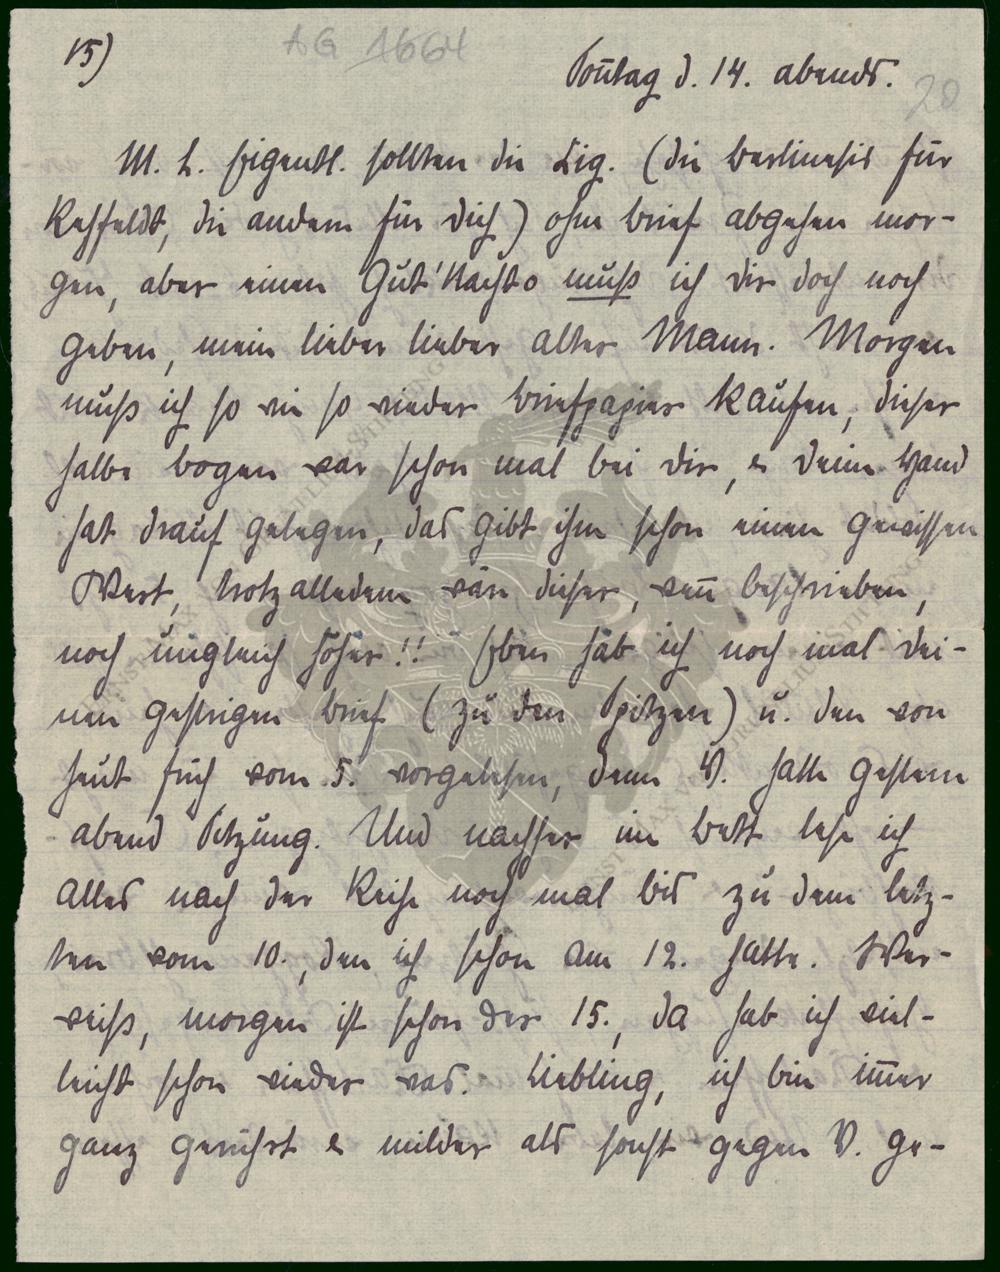 15)
AG 1664
Sonntag d. 14. abends.
20
M. L. Eigentl. sollten die Zig. (die Berlinesis für
Rehfeldt, die andern für Dich) ohne Brief abgehen mor-
gen, aber einen Gut'Nacht o muß ich dir doch noch
geben, mein lieber lieber alter Mann. Morgen
muß ich so wie so wieder Briefpapier kaufen, dieser
halbe Bogen war schon mal bei dir, & deine Hand
hat drauf gelegen, das gibt ihm schon einen gewissen
Wert, trotzalledem wär dieser, wenn beschrieben,
noch ungleich höher!! Eben hab ich noch mal dei-
nen gestrigen Brief (zu den Spitzen) u. den von
heut früh vom 5. vorgelesen, denn V. hatte gestern
abend Sitzung. Und nachher im Bett lese ich
alles nach der Reihe noch mal bis zu dem letz-
ten vom 10., den ich schon am 12. hatte. Wer-
weiß, morgen ist schon der 15., da hab ich viel-
leicht schon wieder was. Liebling, ich bin immer
ganz gerührt & milder als sonst gegen V. ge-